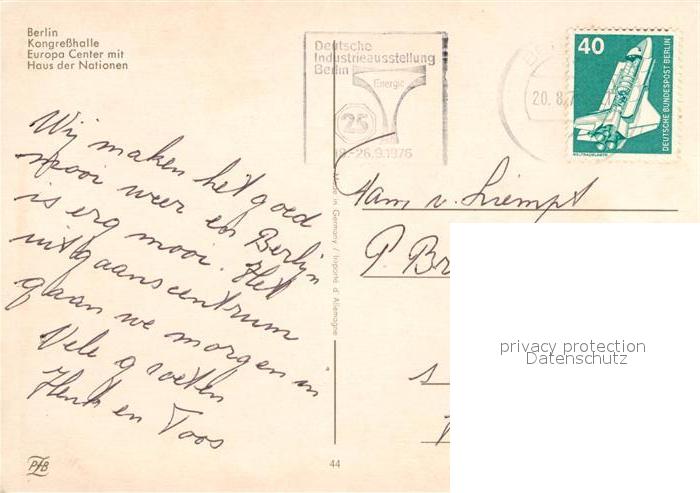 Berlin
Kongreßhalle
Europa Center mit
Haus der Nationen
Deutsche
Industrieausstellung
Berlin
Energie
25
18.-26.9.1976
20.8.7
40
DEUTSCHE BUNDESPOST BERLIN
WELTRAUMLABOR
Wij maken het goed
mooi weer en Berlijn
is erg mooi. Het
uitgaanscentrum
gaan we morgen in
Vele groeten
Henk en Toos
Made in Germany / Importé d'Allemagne
Fam v. Liempt
P. Br
privacy protection
Datenschutz
PHB
44